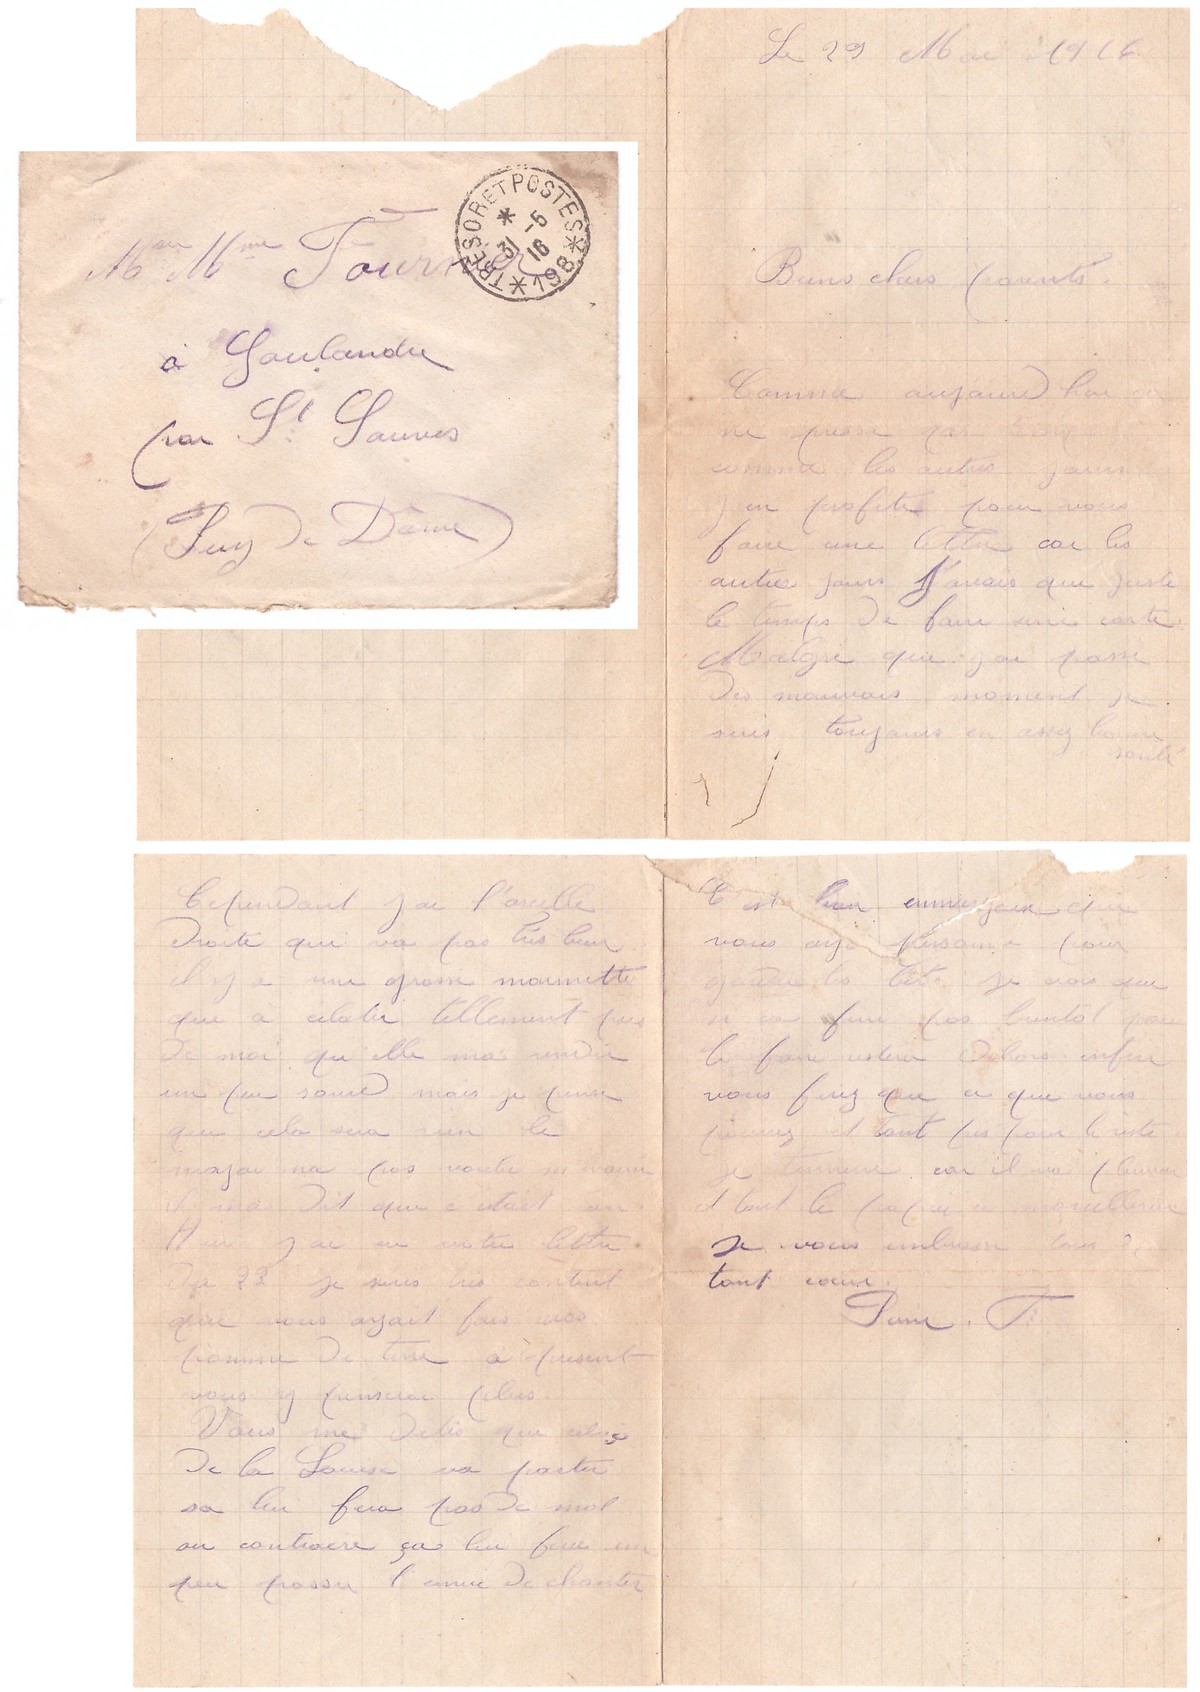 Le 29 Mai 1916
TRESOR ET POSTES
31 -5
16
* 198 *
Msieu Mme Tournier
à
par St Sauves
(Puy de Dôme)
Biens chers parents.
Comme aujourd hui on
ne presse pas
comme les autres jours
j en profite pour vous
faire une lettre car les
autres jours j'avais que juste
le temps de faire une carte.
Malgré que jai passé
des mauvais moment je
suis toujours en assez bonne
santé
Cependant jai l'oreille
droite qui va pas très bien
il y a une grosse marmitte
que à éclater tellement près
de moi qu elle ma rendu
un peu sourd mais je pense
que cela sera rien le
major na pas voulu
il ma dit que c était rien.
Hier jai eu votre lettre
du 22 je suis très content
que vous ayait fais vos
pomme de terre à présent
vous y penserai plus.
Vous me dites que celui
de la Louise va partir
sa lui fera pas de mal
au contraire ça lui fera un
peu passer l envie de chanter
C est bien ennuyeux que
vous aye personne pour
garder les bêtes je crois que
se fini pas bientôt pour
le faire rester dehors enfin
vous ferez que ce que vous
pourrez et tant pis pour le reste
je termine car il va pleuvoir
et tout le papier ce mouillerai
je vous embrasse tous de
tout cœur.
T.